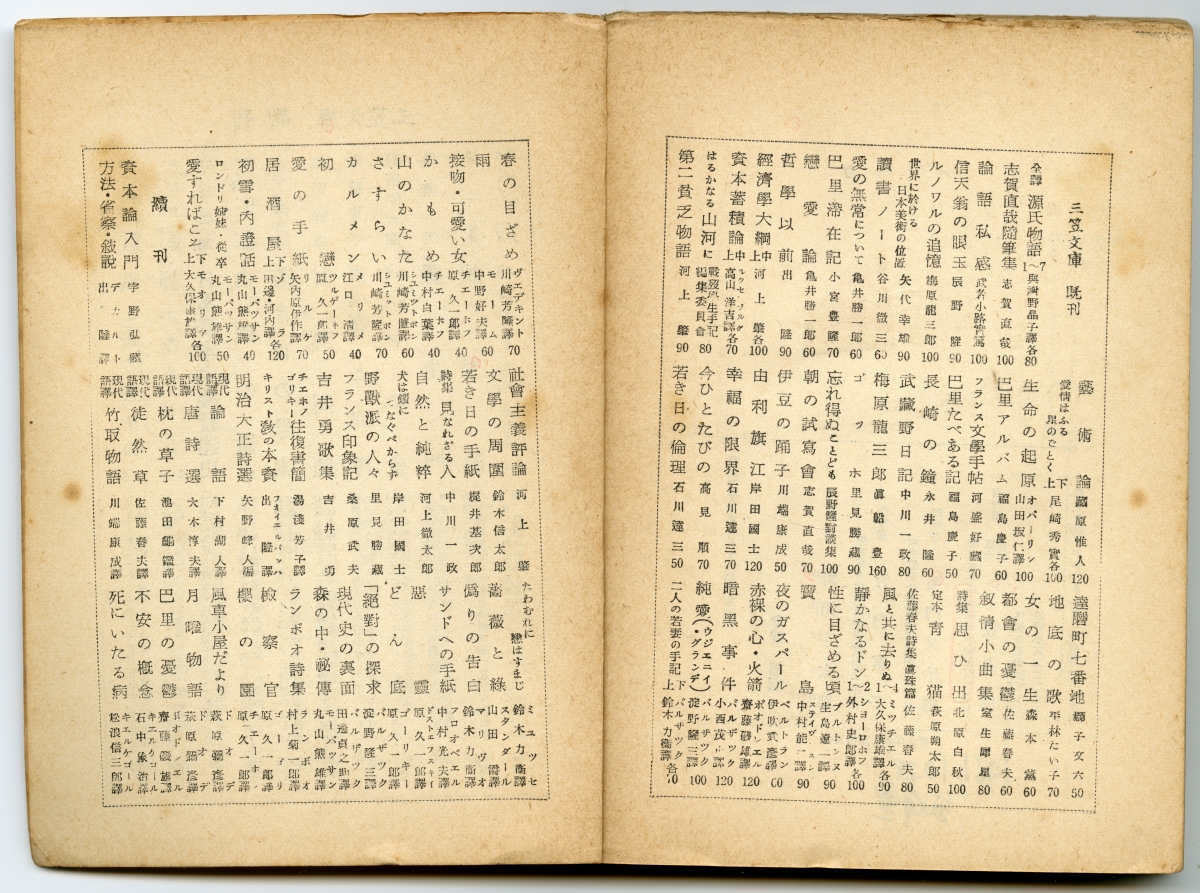 三笠文庫 既刊
全譯 源氏物語 1〜7 與謝野晶子譯 各80
志賀直哉隨筆集 志賀直哉 100
論語私感 武者小路實篤 100
信天翁の眼玉 辰野隆 90
ルノワルの追憶 梅原龍三郎 100
世界に於ける日本美術の位置 矢代幸雄 90
讀書ノート 谷川徹三 60
愛の無常について 龜井勝一郎 60
巴里滯在記 小宮豊隆 70
戀愛論 龜井勝一郎 60
哲學以前 出隆 90
經濟學大綱 上中 河上肇 各100
資本蓄積論 上中 高山洋吉譯 各70
はるかなる山河に 戰歿學生手記編集委員會 80
第二貧乏物語 河上肇 90
藝術論 藏原惟人 120
愛情はふる星のごとく 上下 尾崎秀實 各100
生命の起原 オパーリン 山田坂仁譯 100
巴里アルバム 福島慶子 60
フランス文學手帖 河盛好藏 70
巴里たべある記 福島慶子 50
長崎の鐘 永井隆 60
武藏野日記 中川一政 80
梅原龍三郎 眞船豊 160
ゴッホ 里見勝藏 90
忘れ得ぬことども 辰野隆對談集 100
朝の試寫會 志賀直哉 70
伊豆の踊子 川端康成 50
由利旗江 岸田國士 120
幸福の限界 石川達三 70
今ひとたびの 高見順 70
若き日の倫理 石川達三 50
達磨町七番地 獅子文六 50
地底の歌 平林たい子 70
女の一生 森本薫 60
都會の憂鬱 佐藤春夫 60
敍情小曲集 室生犀星 80
詩集 思ひ出 北原白秋 100
定本 青猫 萩原朔太郎 50
佐藤春夫詩集 眞珠篇 佐藤春夫 80
風と共に去りぬ 1〜4 ミッチェル 大久保康雄譯 各90
靜かなるドン 1〜2 ショーロホフ 外村史郎譯 各100
性に目ざめる頃
寶島 中村能三譯 90
夜のガスパール ベルトラン 伊吹武彦譯
赤裸の心・火箭 ボオドレエル 齋藤磯雄譯 120
暗黑事件 バルザック 小西茂也譯 120
純愛(ウジェニイ・グランデ) バルザック 淀野隆三譯 100
二人の若妻の手記 上下 バルザック 鈴木力衞譯 各70
春の目ざめ ヴェデキント 川崎芳隆譯 70
雨 モーム 中野好夫譯 60
接吻・可愛い女 チェーホフ 原久一郎譯 40
かもめ チェーホフ 中村白葉譯 40
山のかなた シュミットボン 川崎芳隆譯 60
さすらい シュミットボン 川崎芳隆譯 70
カルメン メリメ 江口清譯 40
初戀 ツルゲーネフ 原久一郎譯 50
愛の手紙 リルケ 矢内原伊作譯 70
居酒屋 上下 ゾラ 田邊・河内譯 各120
初雪・內證話 モーパッサン 丸山熊雄譯 40
ロンドリ姉妹・從卒 モーパッサン 丸山熊雄譯 50
愛すればこそ 上下 モオリアク 大久保 譯 各100
續刊
資本論入門 宇野弘藏
方法・省察・敍說 デカルト 出隆譯
社會主義評論 河上肇
文學の周圍 鈴木信太郎
若き日の手紙 梶井基次郎
詩集 見なれざる人 中川一政
自然と純粹 河上徹太郎
犬は鎖につなぐべからず 岸田國士
野獸派の人々 里見勝藏
フランス印象記 桑原武夫
吉井勇歌集 吉井勇
チェホフ ゴリキー 往復書簡 湯淺芳子譯
キリスト教の本質 フオイエルバッハ 出隆譯
明治大正詩選 矢野峰人編
現代語譯 論語 下村湖人譯
現代語譯 唐詩選 大木惇夫譯
現代語譯 枕の草子 池田龜鑑譯
現代語譯 徒然草 佐藤春夫譯
現代語譯 竹取物語 川端康成譯
たわむれに戀はすまじ ミュッセ 鈴木力衞譯
薔薇と綠 スタンダール 山田爵譯
僞りの告白 マリヴオ 鈴木力衞譯
サンドへの手紙 フロオベエル 中村光夫譯
惡靈 ドストエフスキイ 原久一郎譯
どん底 ゴーリキー 原久一郎譯
「絕對」の探求 バルザック 淀野隆三譯
現代史の裏面 バルザック 田邊貞之助譯
森の中・祕傳 モーパッサン 丸山熊雄譯
ランボオ詩集 ランボオ 村上菊一郎譯
檢察官 ゴーゴリ 原久一郎譯
櫻の園 チェーホフ 原久一郎譯
風車小屋だより ドオデ 萩原彌彦譯
月曜物語 ドオデ 萩原彌彦譯
巴里の憂鬱 ボオドレエル 齋藤磯雄譯
不安の概念 キエルケゴール 石中象治譯
死にいたる病 キエルケゴール 松浪信三郎譯